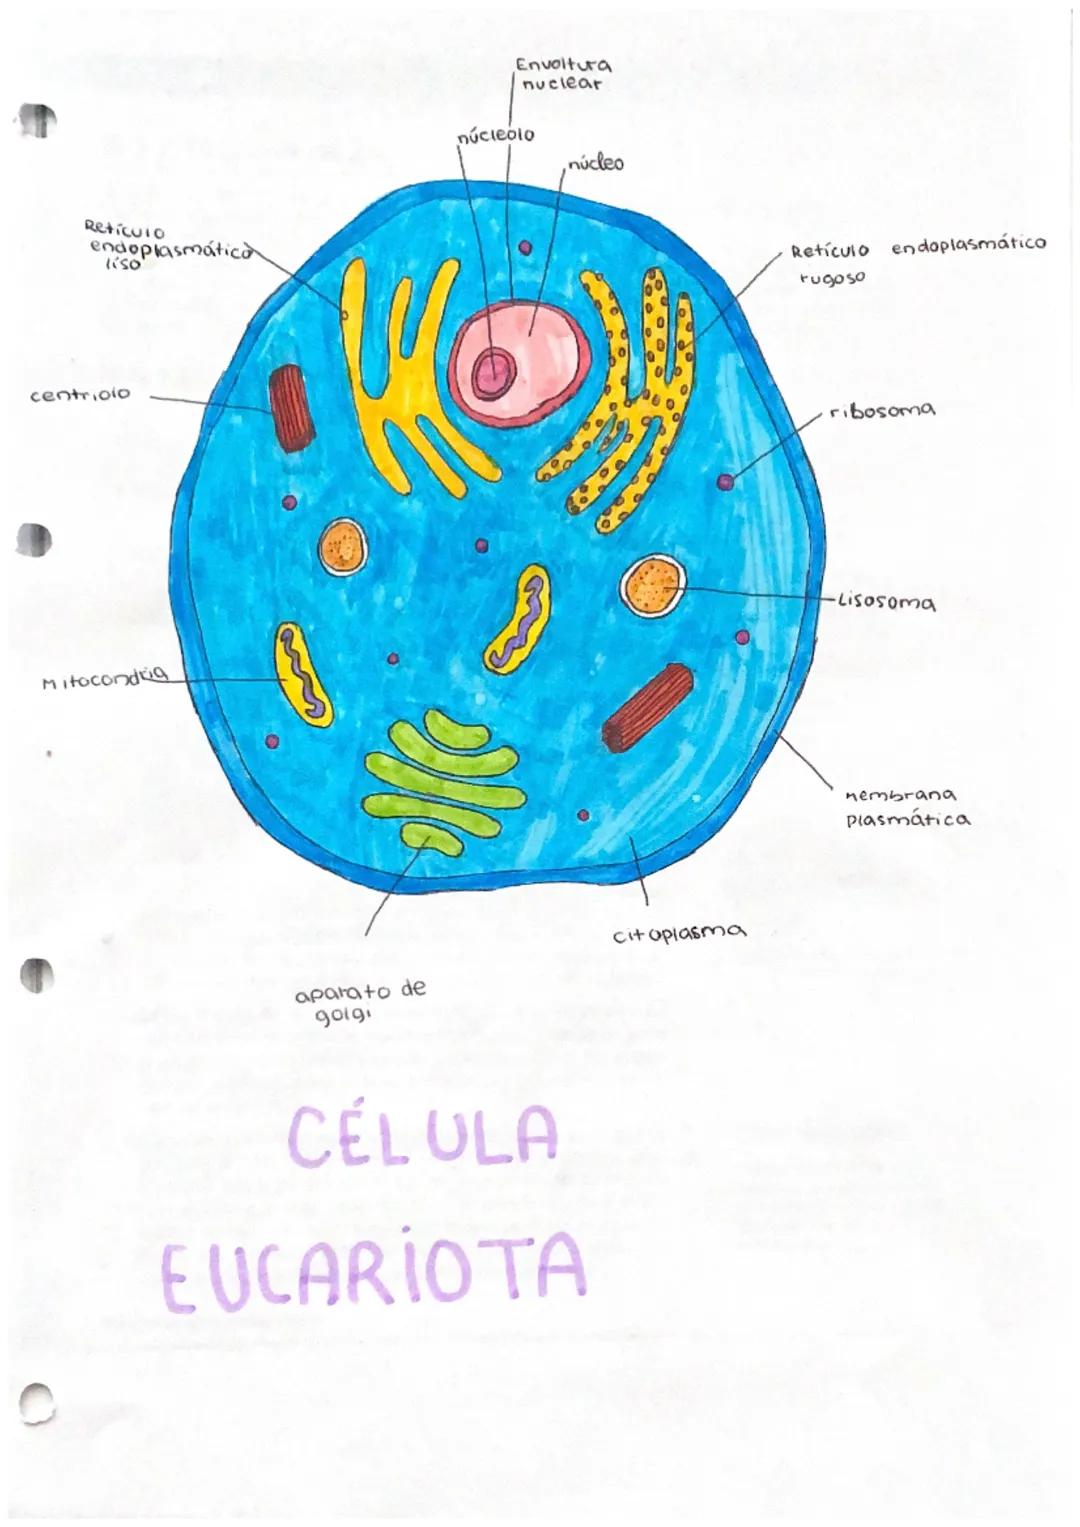 Envoltura
nuclear
núcleolo
núcleo
Retículo
endoplasmático
liso
Retículo endoplasmático
rugoso
centriolo
ribosoma
Lisosoma
Mitocondria
membrana
plasmática
citoplasma
aparato de
golgi
CÉLULA
EUCARIOTA